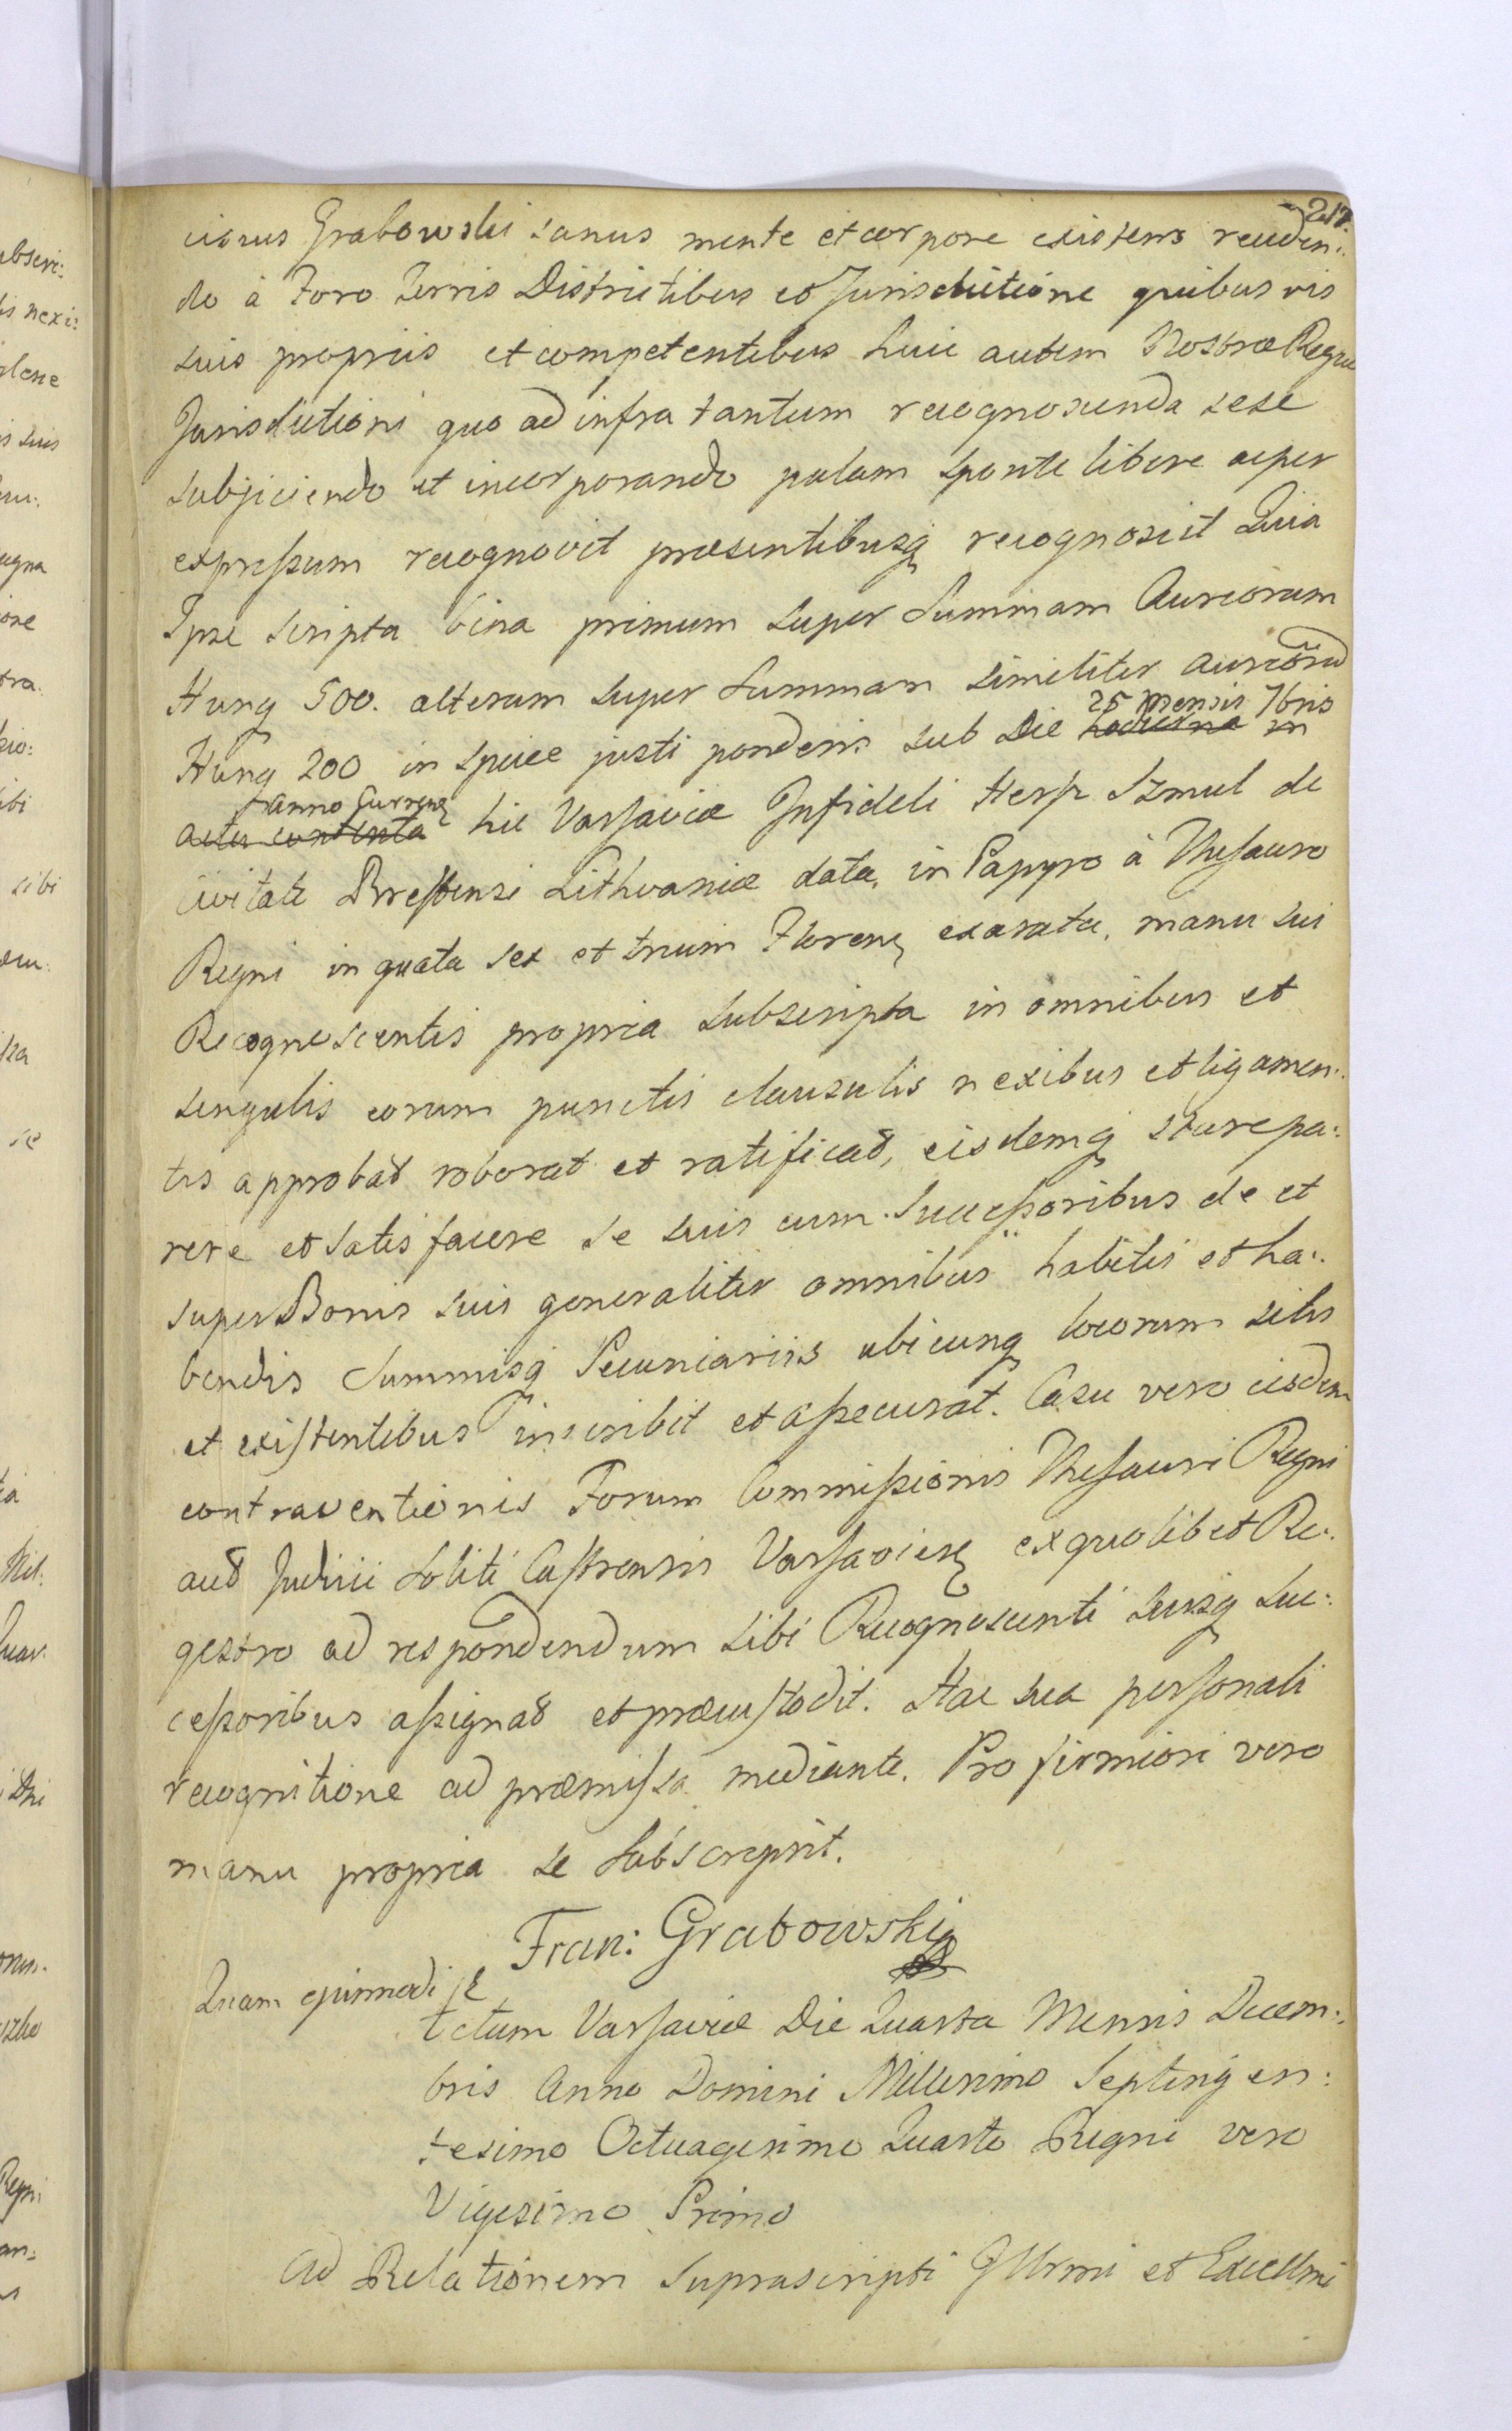 217.
ciscus Grabowski sanus mente et corpore existens receden:
do à Foro Terris Districtibus et Jurisdictione quibusvis
suis propriis et competentibus huic autem Nostræ Regiæ
Jurisdictioni quo ad infra tantum recognoscenda sese
subjiciendo et incorporando palam sponte libere ac per
expressum recognovit præsentibusq recognoscit Quia
Ipse scripta bina primum super Summam Aureorum
Hung 500. alterum super Summam similiter Aureorũ
Hung 200 in specie justi ponderis sub Die hodierna in 25 Mensis 7bris
actu contenta Anno Curren hic Varsaviæ Infideli Hersz Szmul de
civitate Brestensi Lithvaniæ data, in Papyro à Thesauro
Regni inquata sex et trium Floren exarata, manu sui
Recognoscentis propria subscripta in omnibus et
singulis eorum punctis clausulis nexibus et ligamen:
tis approbat roborat et ratificat, eisdemq stare pa:
rere et satisfacere se suis cum Successoribus de et
super Bonis suis generaliter omnibus habitis et ha:
bendis Summisq Pecuniariis ubicunq locorum sitis
et existentibus inscribit et assecurat. Casu vero eisdem
contraventionis Forum Commissionis Thesauri Regni
aut Judicii soliti Castrensis Varsavien ex quolibet Re:
gestro ad respondendum sibi Recognoscenti suisq Suc:
cessoribus assignat et præcustodit. Hac sua personali
recognitione ad præmissa mediante. Pro firmiori vero
manu propria se subscripsit.
Fran: Grabowski
Quam ejusmodi
Actum Varsaviæ Die Quarta Mensis Decem:
bris Anno Domini Millesimo Septingen:
tesimo Octuagesimo Quarto Regni vero
Vigesimo Primo
Ad Relationem suprascripti Illrmi et Excellmi